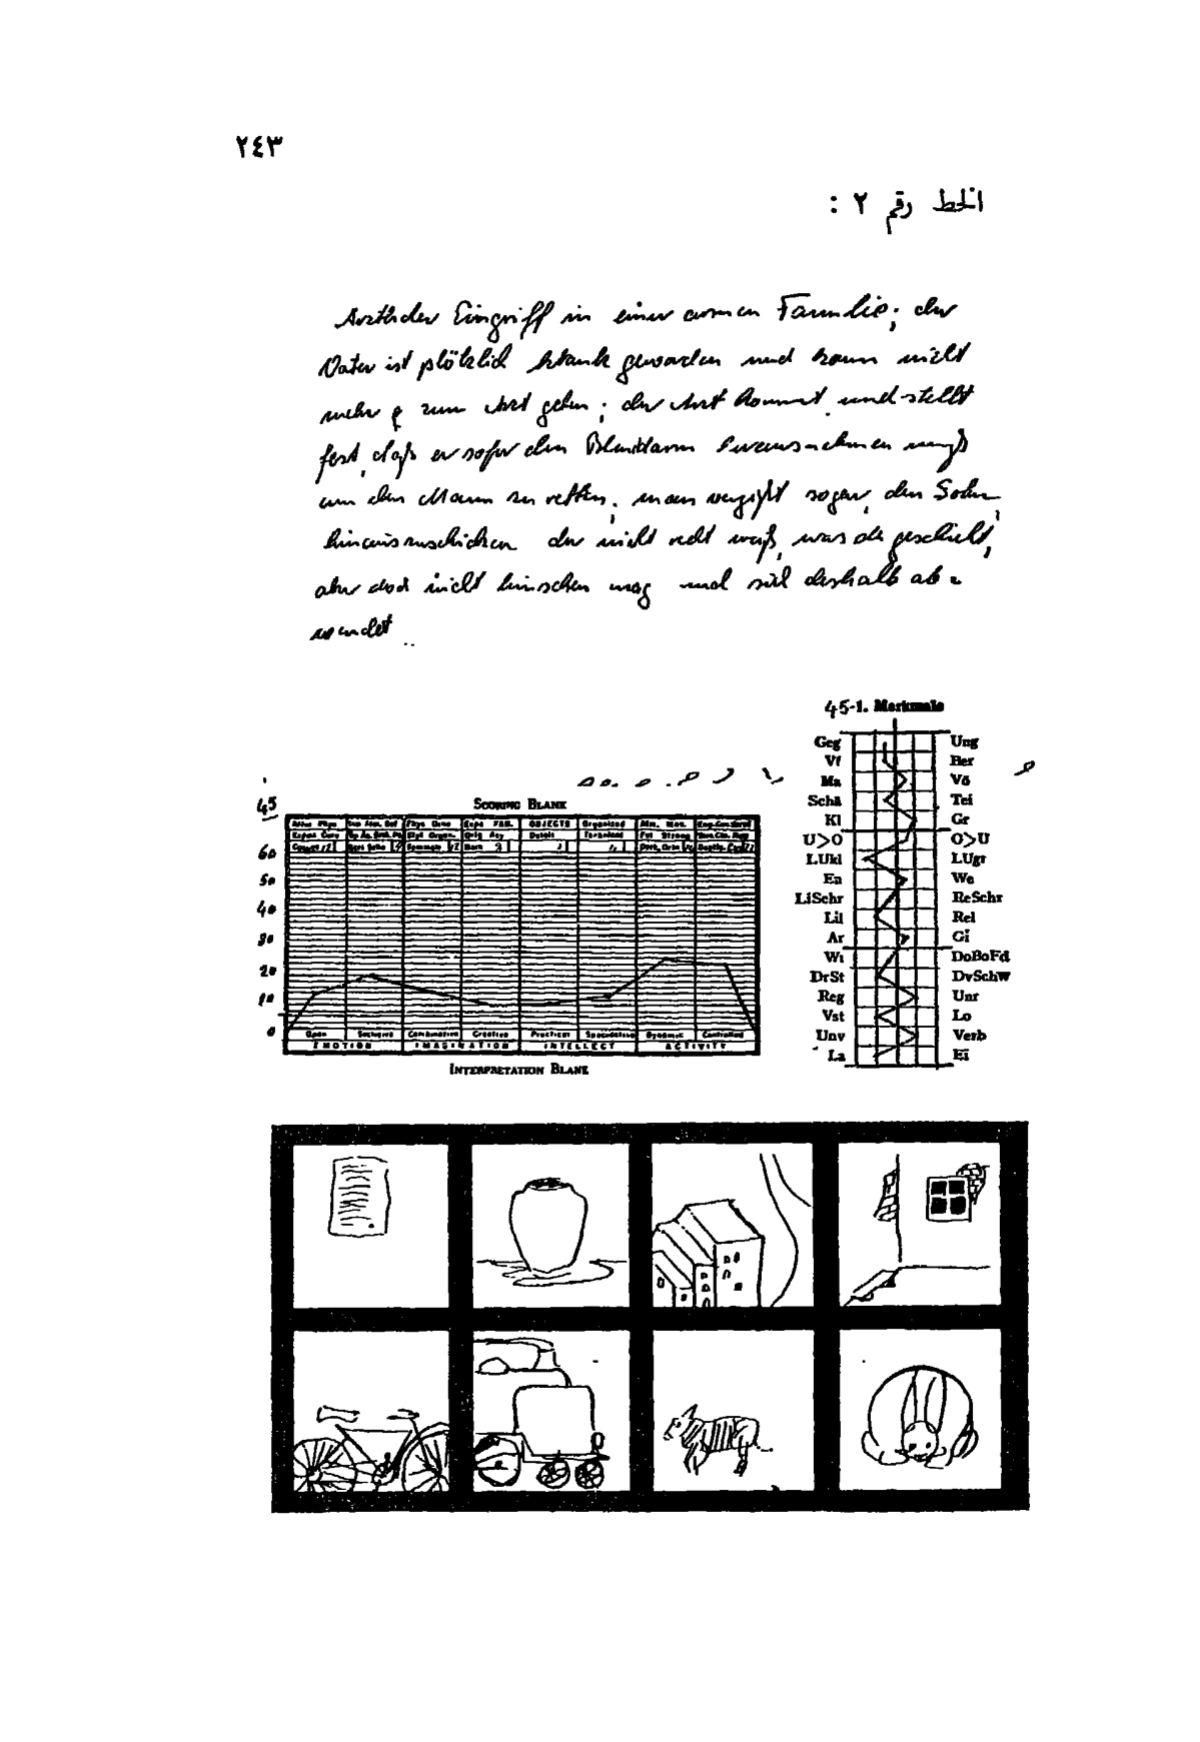 ٢٤٣
الخط رقم ٢ :
Eingriff in einer armen Familie; der
Vater ist plötzlich krank geworden und kann nicht
mehr zum Arzt gehen; der Arzt kommt und stellt
fest, daß er sofort den Blinddarm herausnehmen muß
um den Mann zu retten; man vergißt sogar, den Sohn
hinauszuschicken der nicht recht weiß, was da geschieht,
aber doch nicht hinsehen mag und sich deshalb ab-
wendet..
45-1. Merkmale
Geg Ung
Vf Ber
Ma Vö
Schä Tei
Kl Gr
U>O O>U
LUkl LUgr
En We
LiSchr ReSchr
Lil Rel
Ar Gi
Wi DoBoFd
DrSt DvSchw
Reg Unr
Vst Lo
Unv Verb
La Ei
45
SCORING BLANK
OBJECTS Organized
Detail
60
50
40
30
20
10
0
Open Seclusive Combinative Creative Practical Speculative Dynamic Controlled
EMOTION IMAGINATION INTELLECT ACTIVITY
INTERPRETATION BLANK